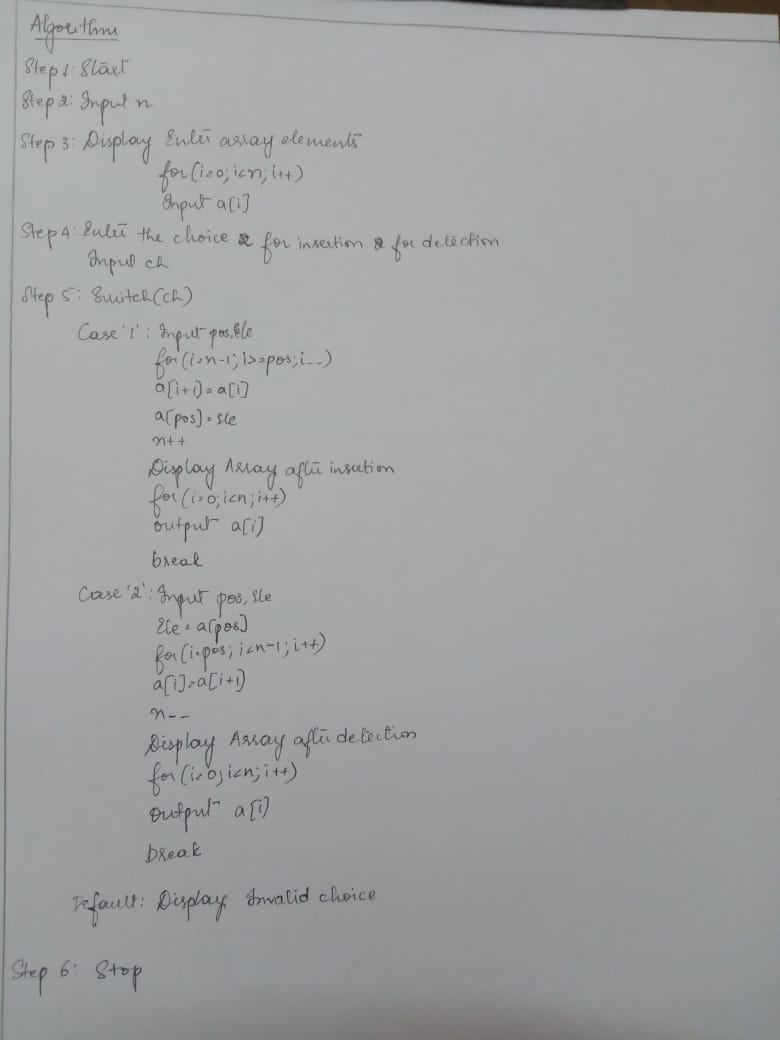 Algorithm
Step 1: Start
Step 2: Input n
Step 3: Display Enter array elements
for(i=0;i<n;i++)
Input a[i]
Step 4: Enter the choice for insertion 2 for detection
Input ch
Step 5: Switch(ch)
Case '1': Input pos,Ele
for(i=n-1;i>=pos;i--)
a[i+1)=a[i]
a[pos]=ele
n++
Display Array after insertion
for(i=0;i<n;i++)
output a[i]
break
Case '2': Input pos, Ele
Ele = a[pos]
for(i=pos; i<n-1; i++)
a[i]=a[i+1)
n--
Display Array after detection
for(i=0;i<n;i++)
output a[i]
break
Default: Display Invalid choice
Step 6: Stop